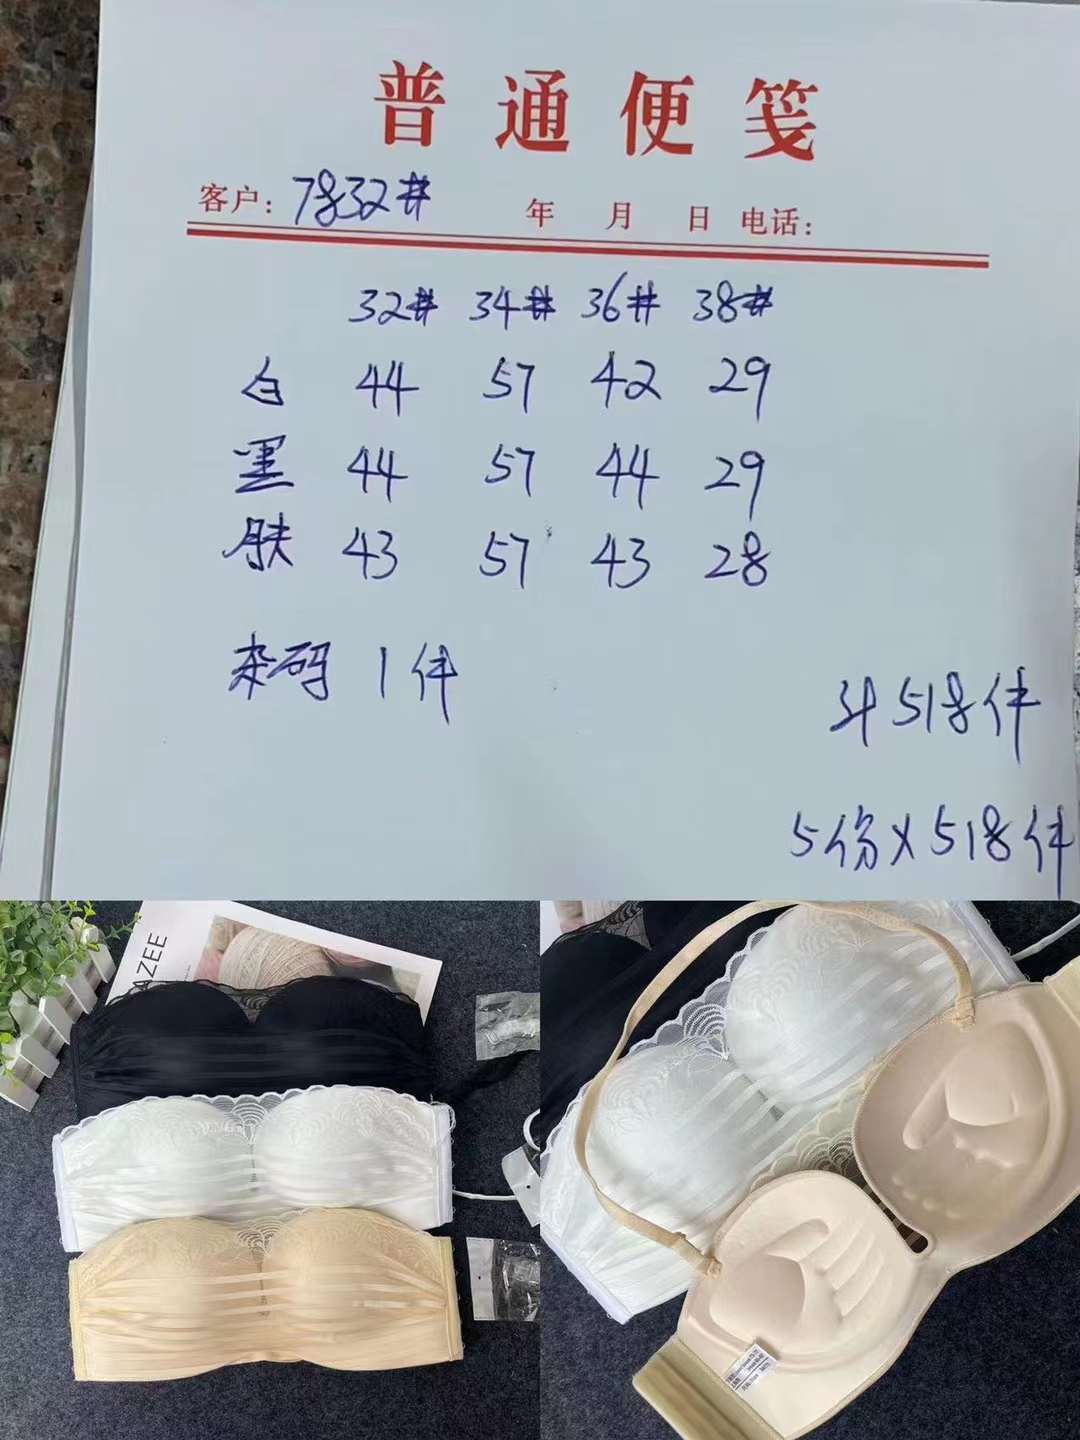 普通便笺
客户: 7832# 年 月 日 电话:
32# 34# 36# 38#
白 44 57 42 29
黑 44 57 44 29
肤 43 57 43 28
杂码 1件
计518件
5份X518件
AZEE